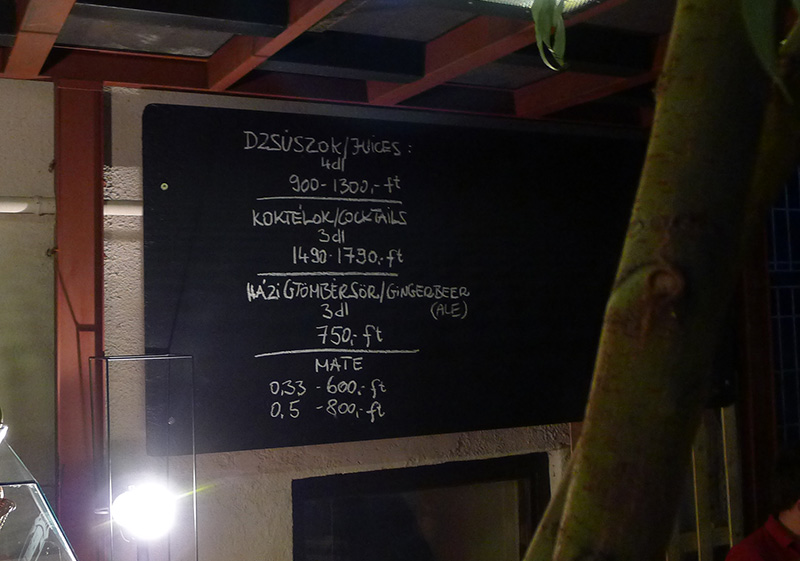 DZSÚSZOK/JUICES:
4dl
900-1300,-ft
KOKTÉLOK/COCKTAILS
3dl
1490-1790,-ft
HÁZI GYÖMBÉRSÖR/GINGERBEER
3dl (ALE)
750,-ft
MATE
0,33 -600,-ft
0,5 -800,-ft